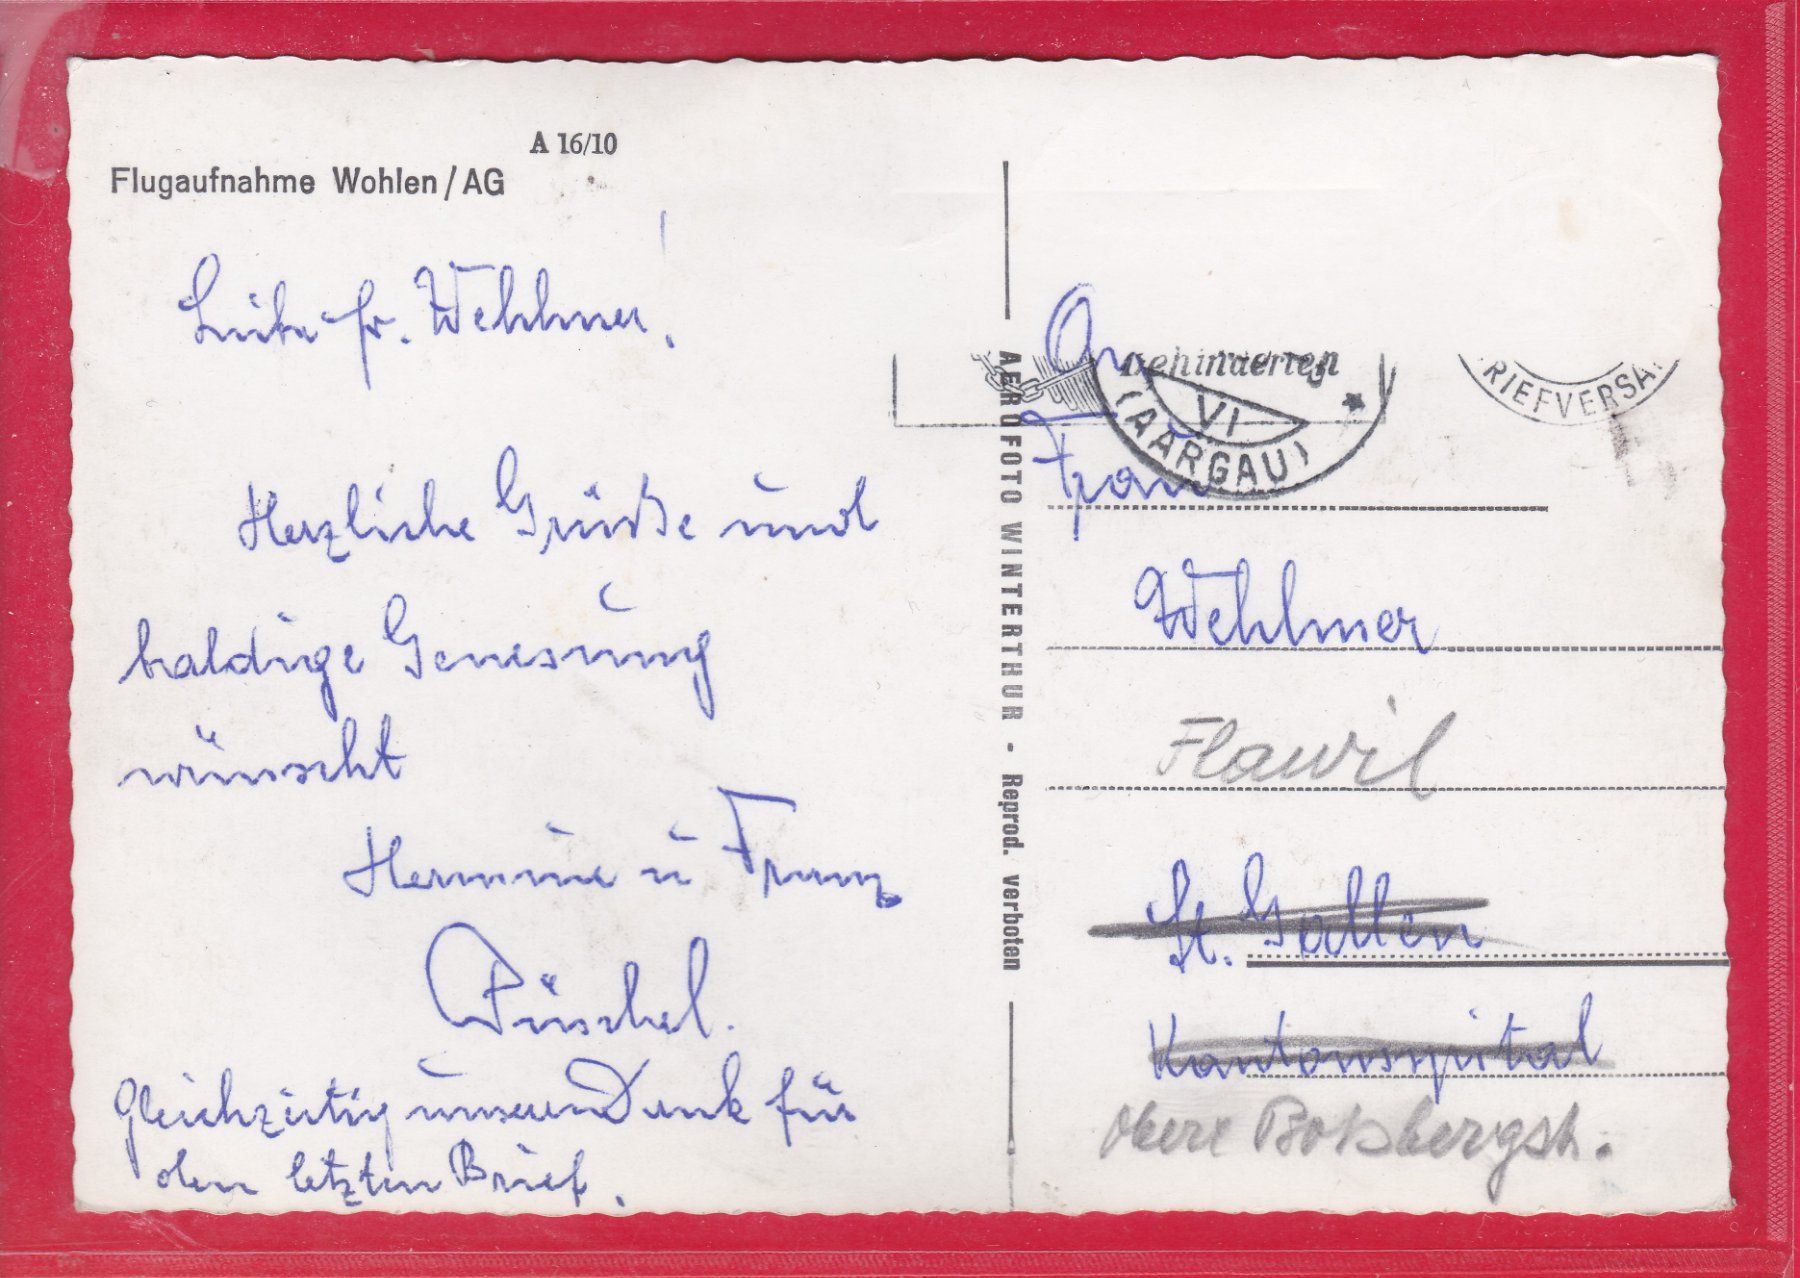 A 16/10
Flugaufnahme Wohlen/AG
Liebe Fr. Wehhmer!
Herzliche Grüße und
baldige Genesung
wünscht
Hermine u Franz
Püschel.
Gleichzeitig unseren Dank für
den letzten Brief.
AEROFOTO WINTERTHUR - Reprod. verboten
An
Behinderten
VI
(AARGAU)
RIEFVERSA
Frau
Wehhmer
Flawil
St. Gallen
Kantonsspital
obere Botsbergstr.